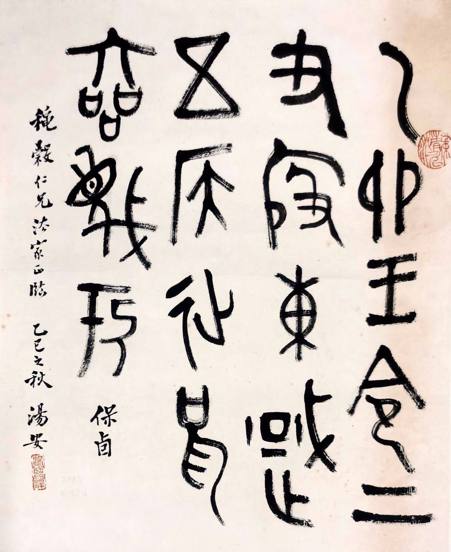 乙卯王令二
及殷東或
五侯征兄
六品蔑曆
保卣
穀仁兄法家正臨 乙巳之秋 湯安